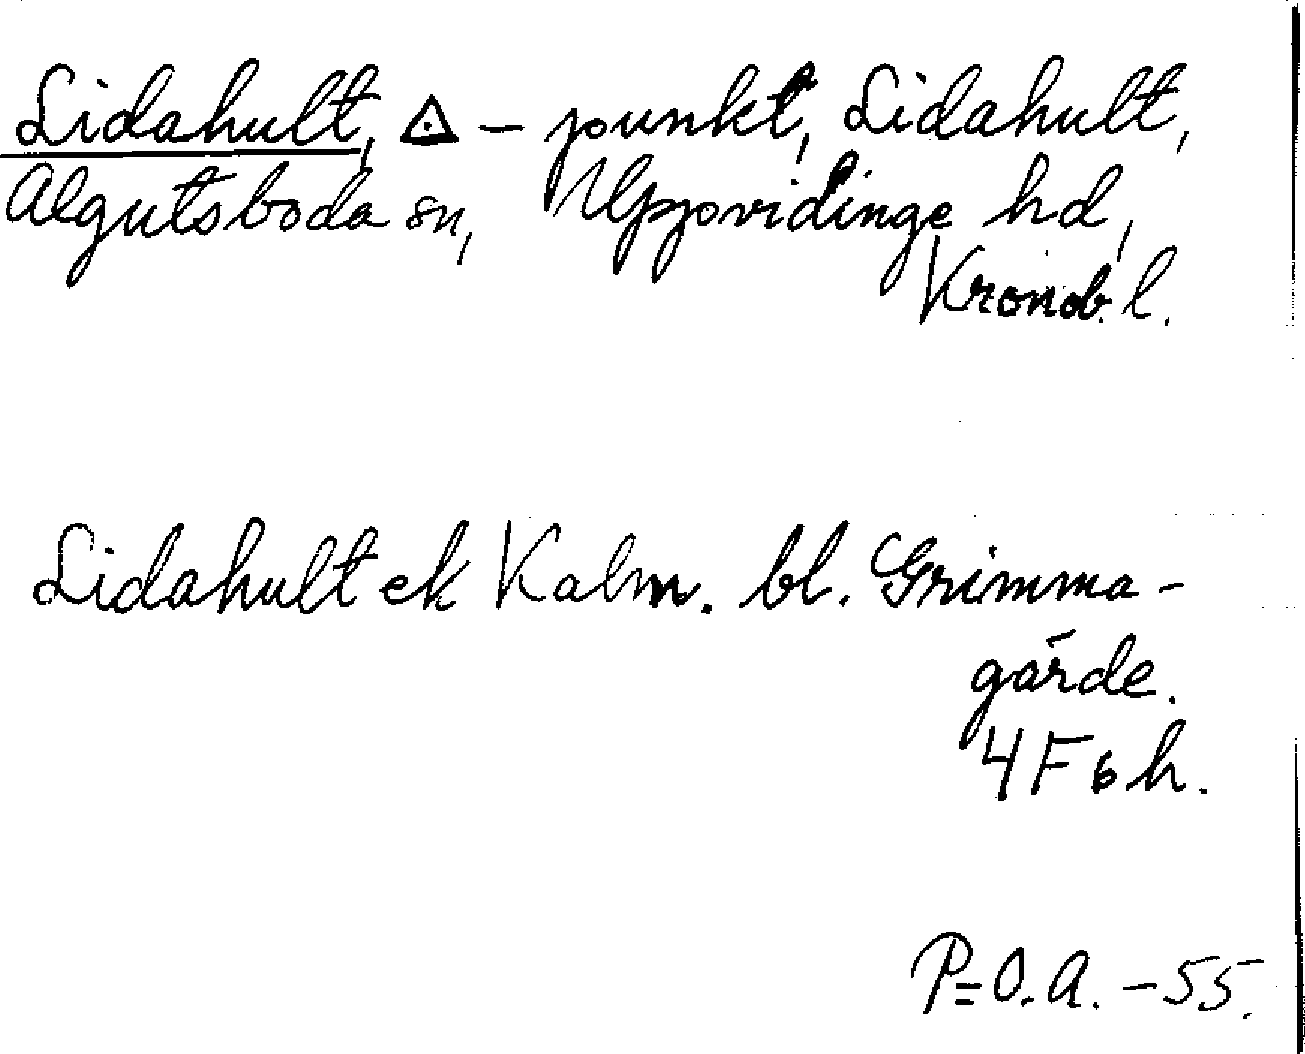 Lidahult, △ – punkt, Lidahult,
Algutsboda sn, Uppvidinge hd,
Kronob. l.
Lidahult ek Kalm. bl. Grimma-
gärde.
4 F 6 h.
P=O.A. – 55.